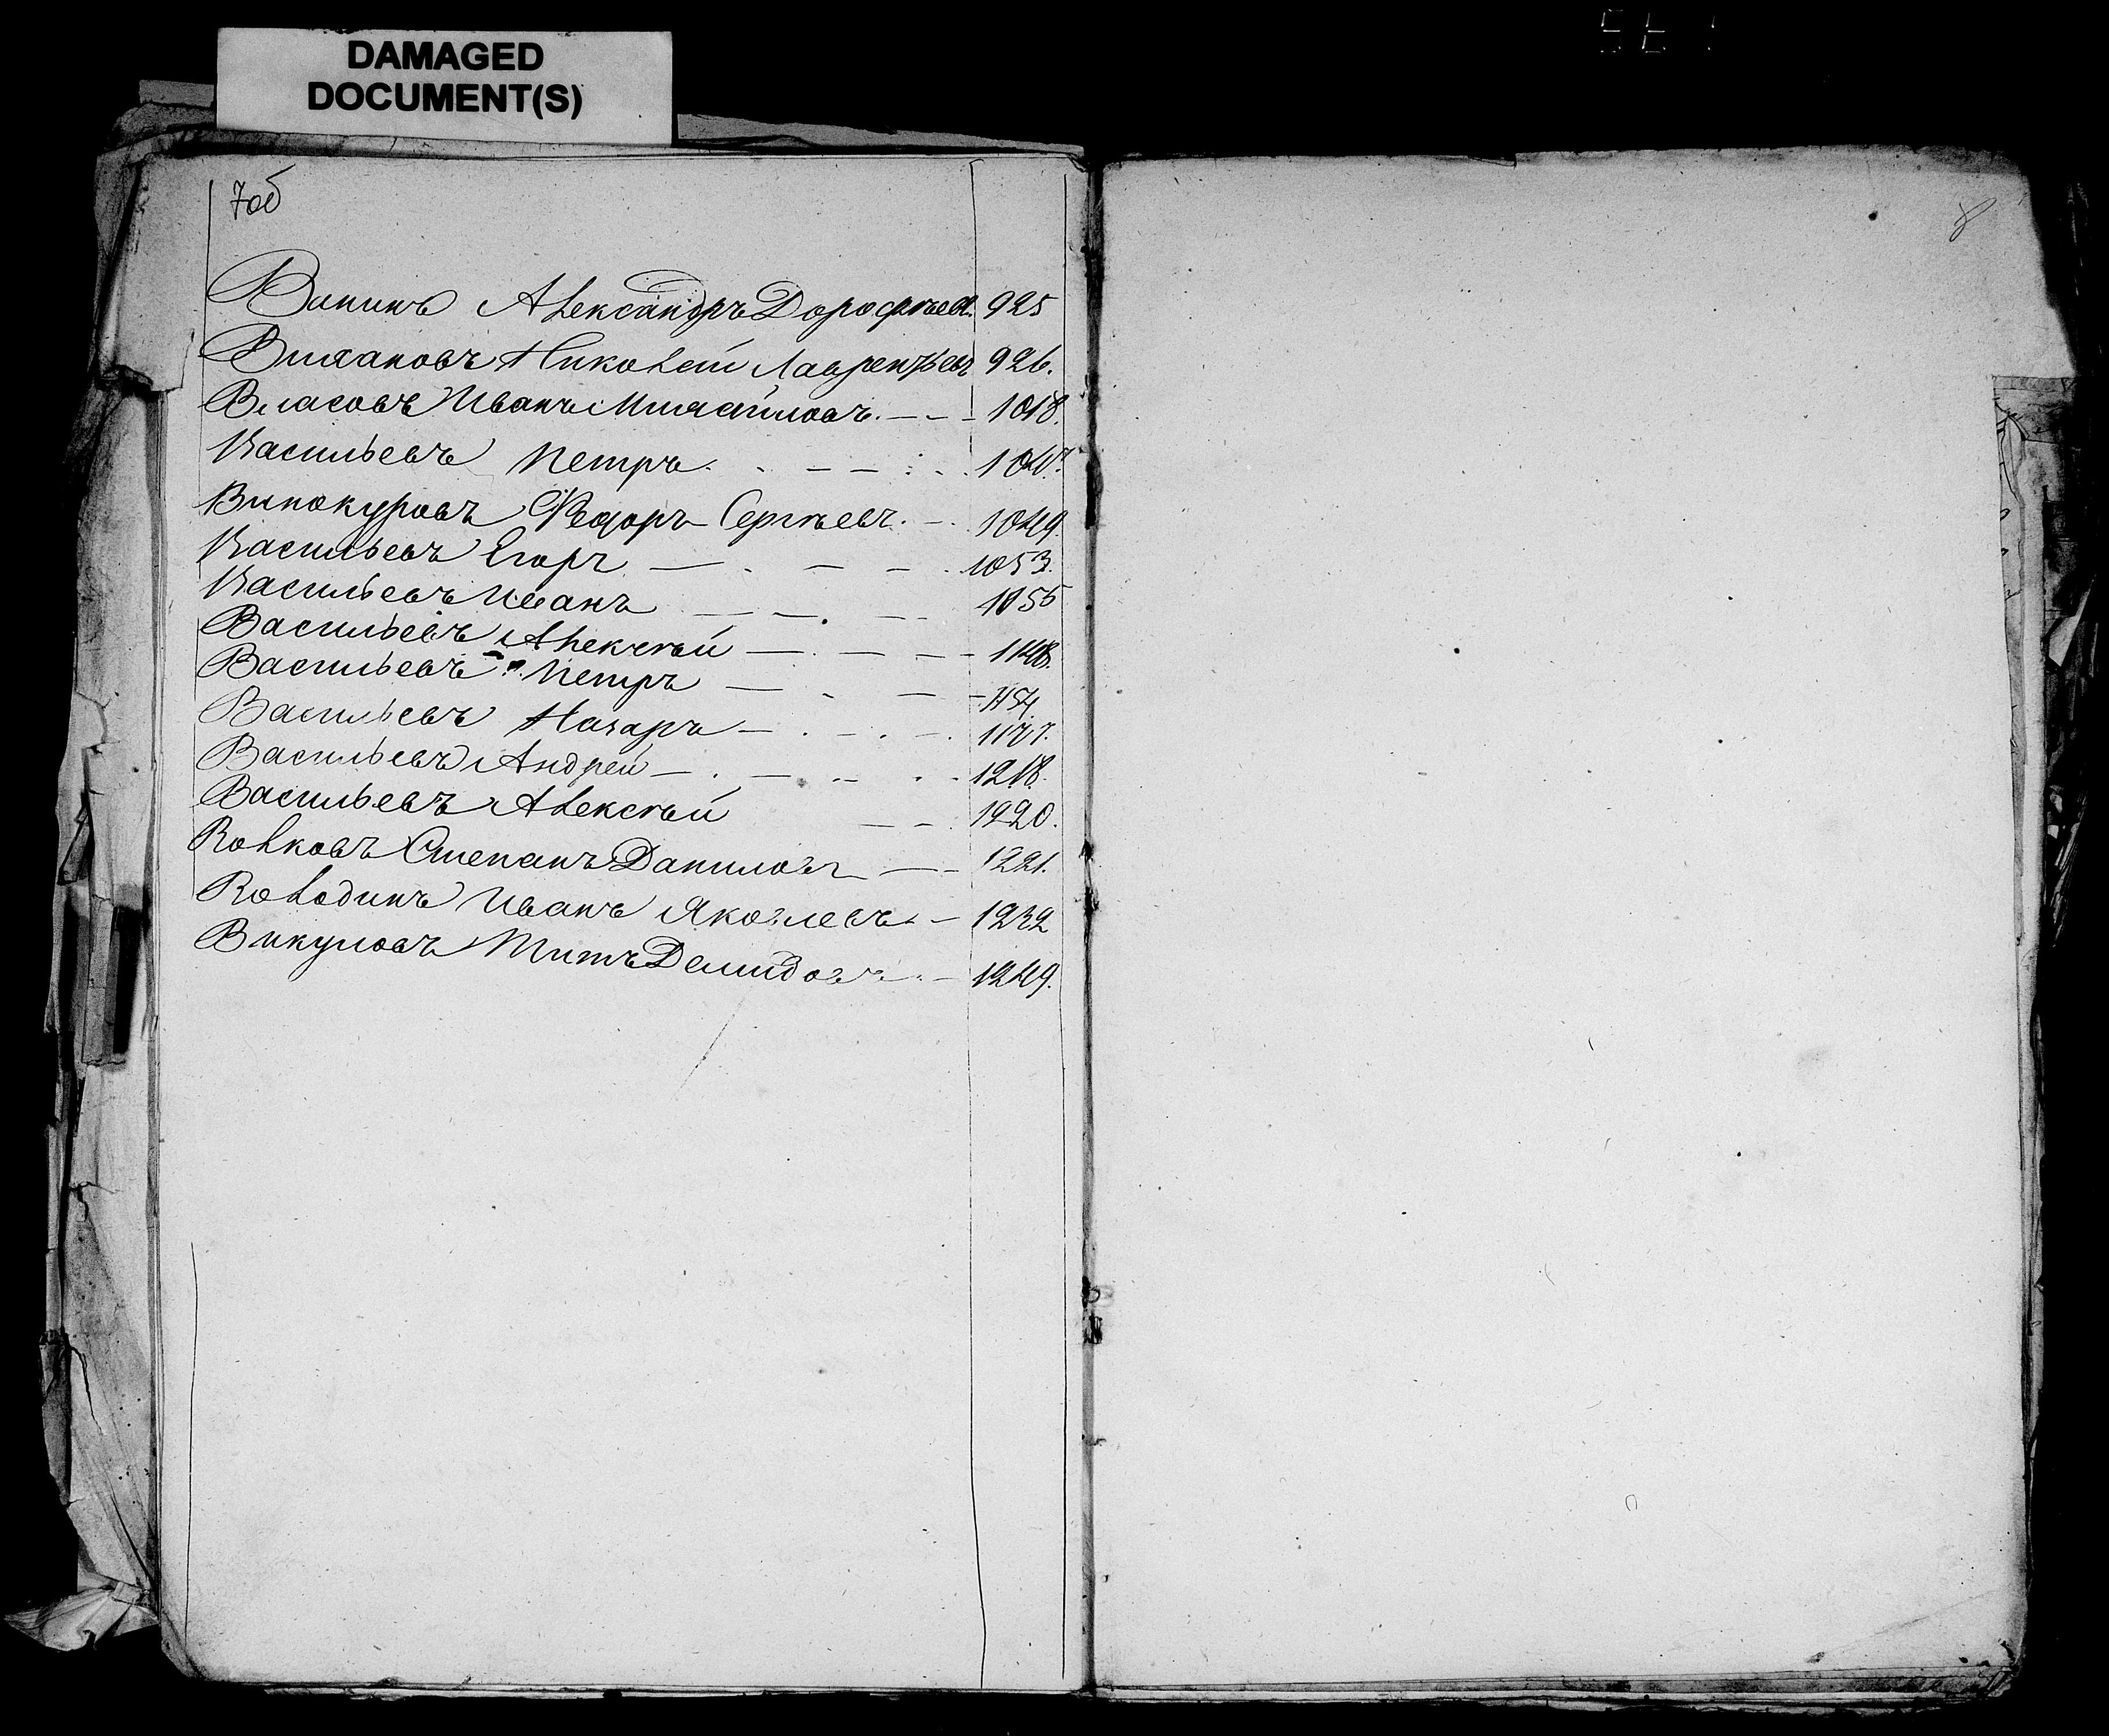 DAMAGED
DOCUMENT(S)
7об
8
Ванинъ Александръ Дорофѣев. 925
Николай Лаврентьевъ 926.
Власовъ Иванъ Михайловъ. — - - 1018.
Васильевъ Петръ. - - — — : - . 1047.
Винокуровъ Федоръ Сергѣевъ. - . 1049.
Васильевъ Егоръ — . — - . 1053.
Васильевъ Иванъ — — . — - 1055
Васильевъ Алексѣй — . — - — - 1148.
Васильевъ Петръ — - — - 1154
Васильевъ Назаръ — . - . - . 1177.
Васильевъ Андрей — . — . - . . 1218.
Васильевъ Алексѣй — - . 1220.
Волковъ Степанъ Даниловъ — - 1221.
Володинъ Иванъ Яковлевъ. — 1232
Викуловъ Титъ Демидовъ. . — 1249.